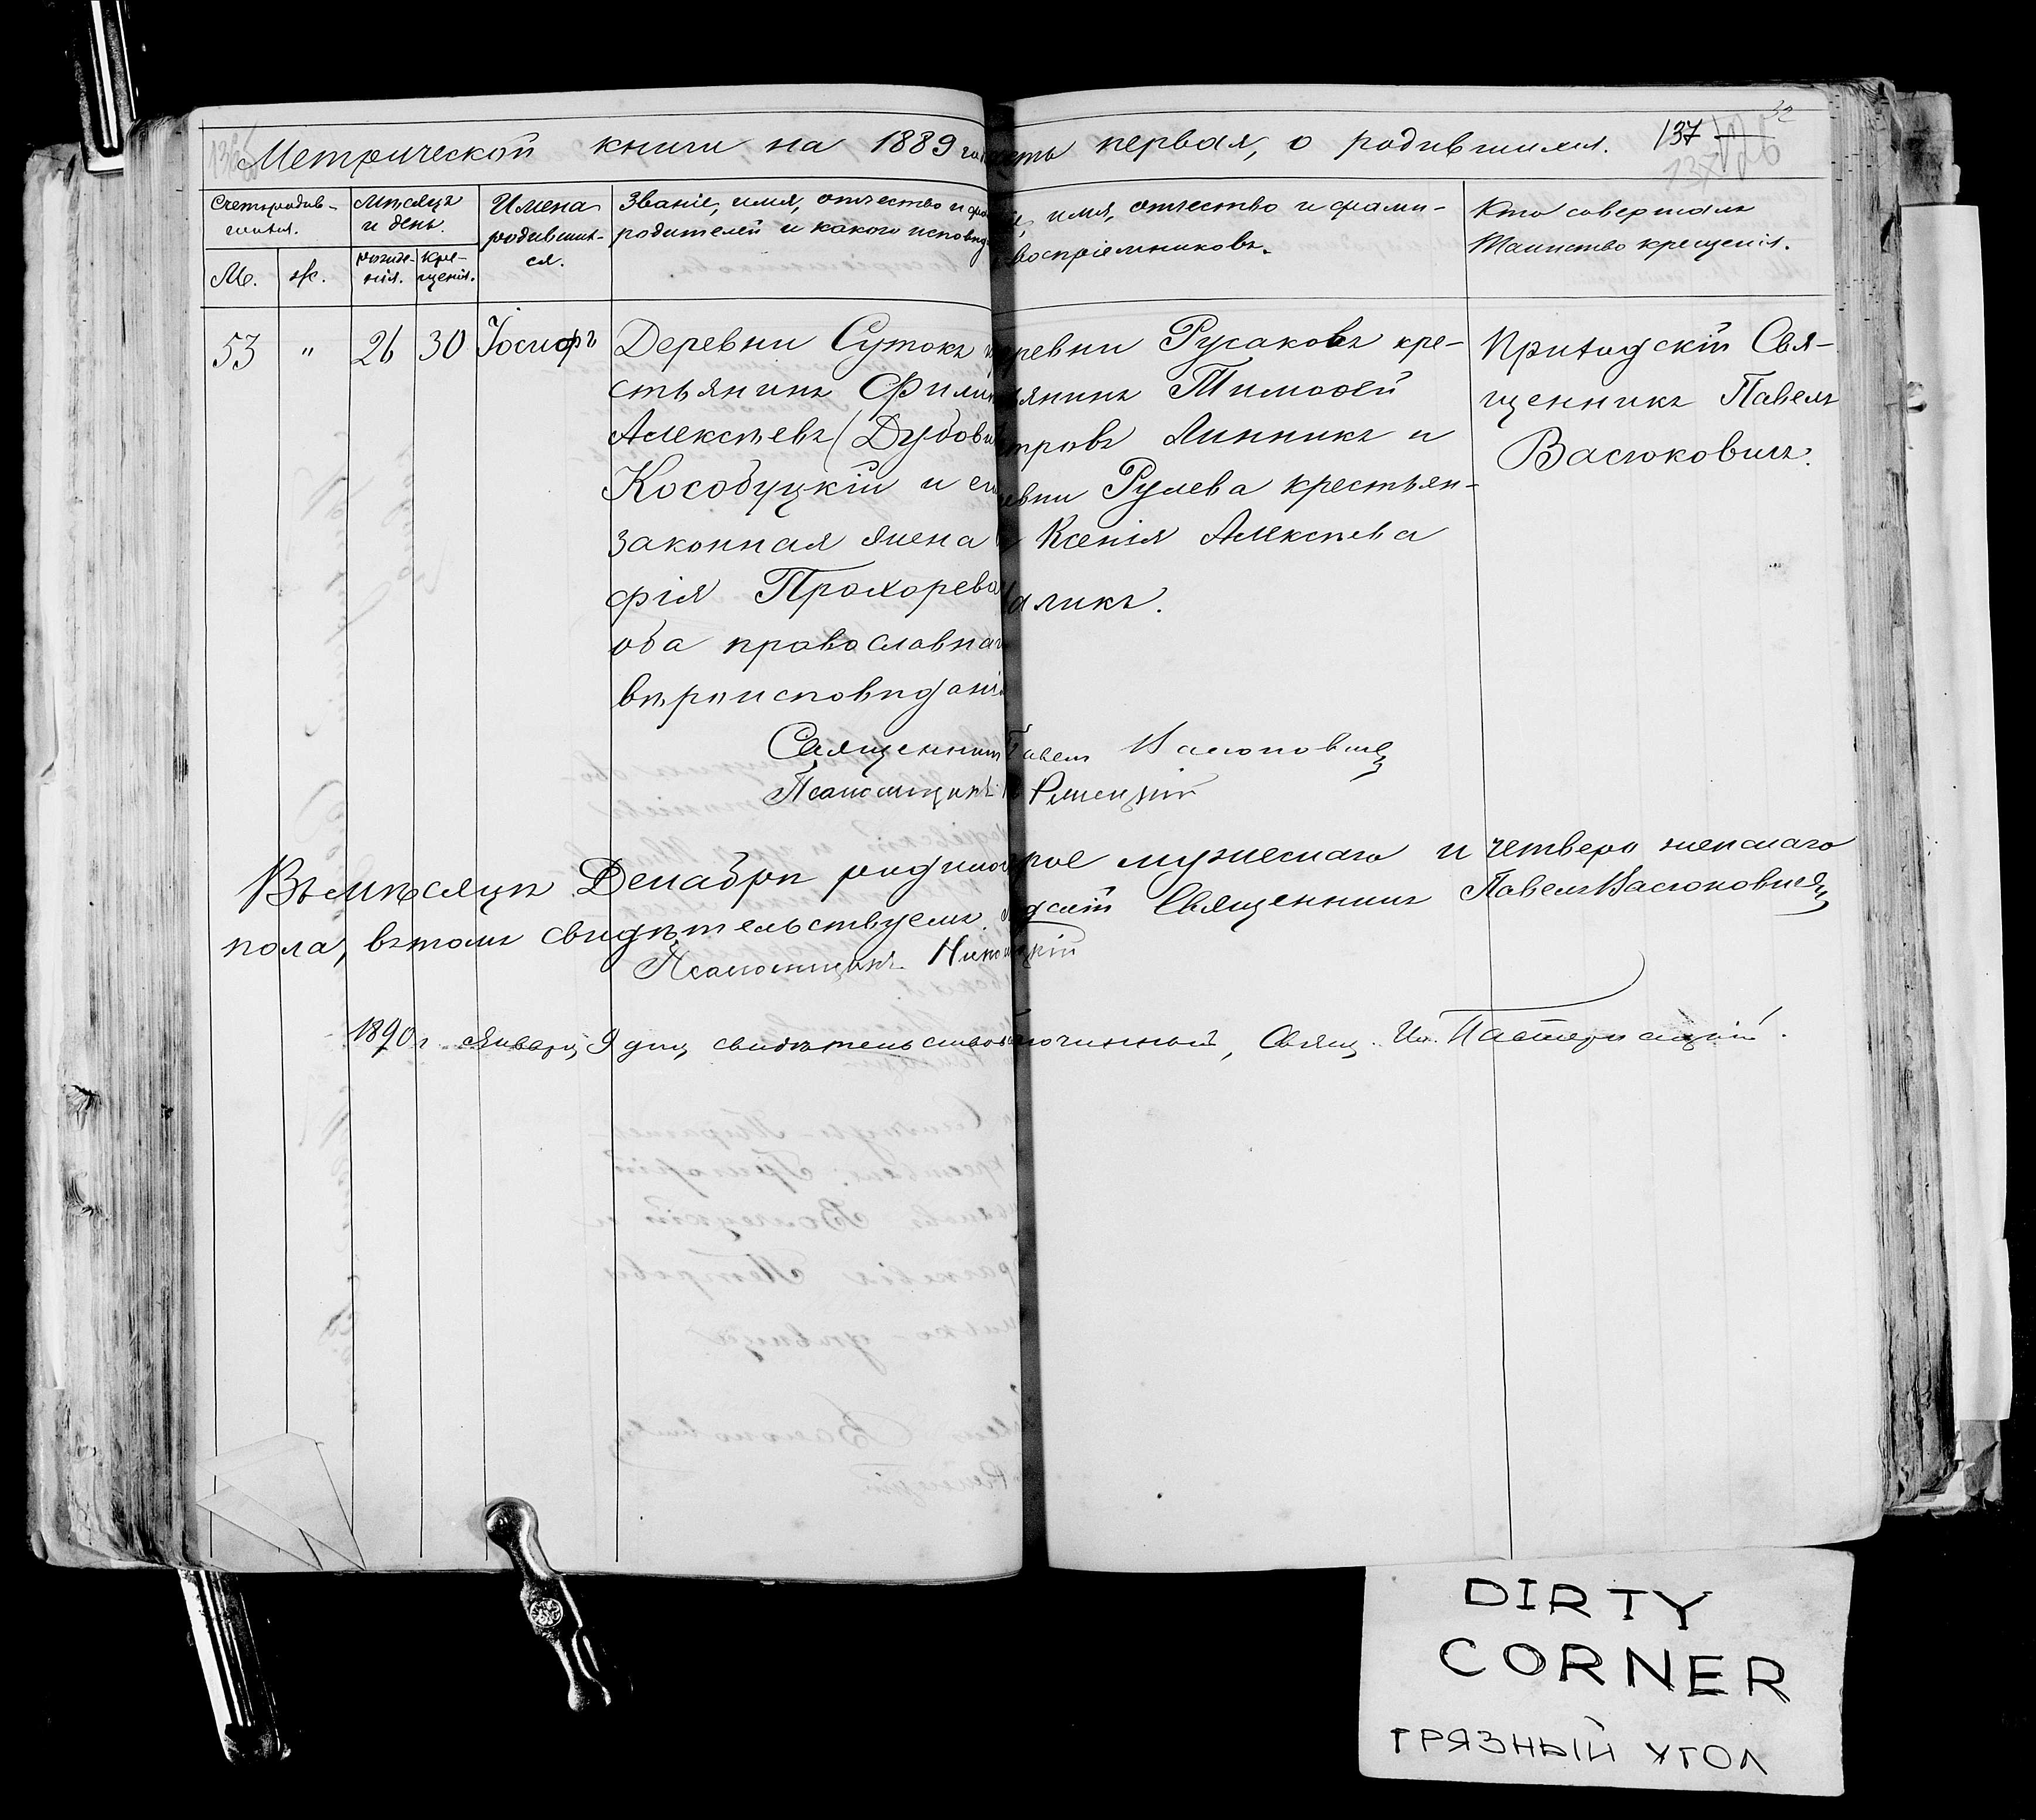 Метрической книги на 1889 го часть первая, о родившихся. 137
32
Счетъ родив-
шихся.
Мѣсяцъ
и день.
Имена
родивших-
ся.
Званіе, имя, отчество и фа
родителей и какого исповѣд
имя, отчество и фами-
воспріемниковъ.
Кто совершалъ
Таинство крещенія.
М.
Ж.
рожде-
нія.
кре-
щенія.
53 " 26 30 Іосифъ
Деревни Сутокъ
стьянинъ Фили
Алексѣевъ (Дубови
Кособуцкій и ег
законная жена
фія Прохорева
оба православнаг
вѣроисповѣдані
ревни Русаковъ кре-
янинъ Тимоѳей
тровъ Линникъ и
евни Рулева крестьян-
Ксенія Алексѣева
аликъ.
Приходскій Свя-
щенникъ Павелъ
Васюковичъ.
Священникъ Павелъ Васюковичъ
Псаломщикъ
Въ мѣсяцѣ Декабрѣ родилос трое мужескаго и четверо женскаго
пола, въ томъ свидѣтельствуемъ. Священникъ Павелъ Васюковичъ
Псаломщикъ
1890 г. Января 9 дня свидѣтельствов гочинный, Свящ. Ил. Пастернацкій.
DIRTY
CORNER
ГРЯЗНЫЙ УГОЛ